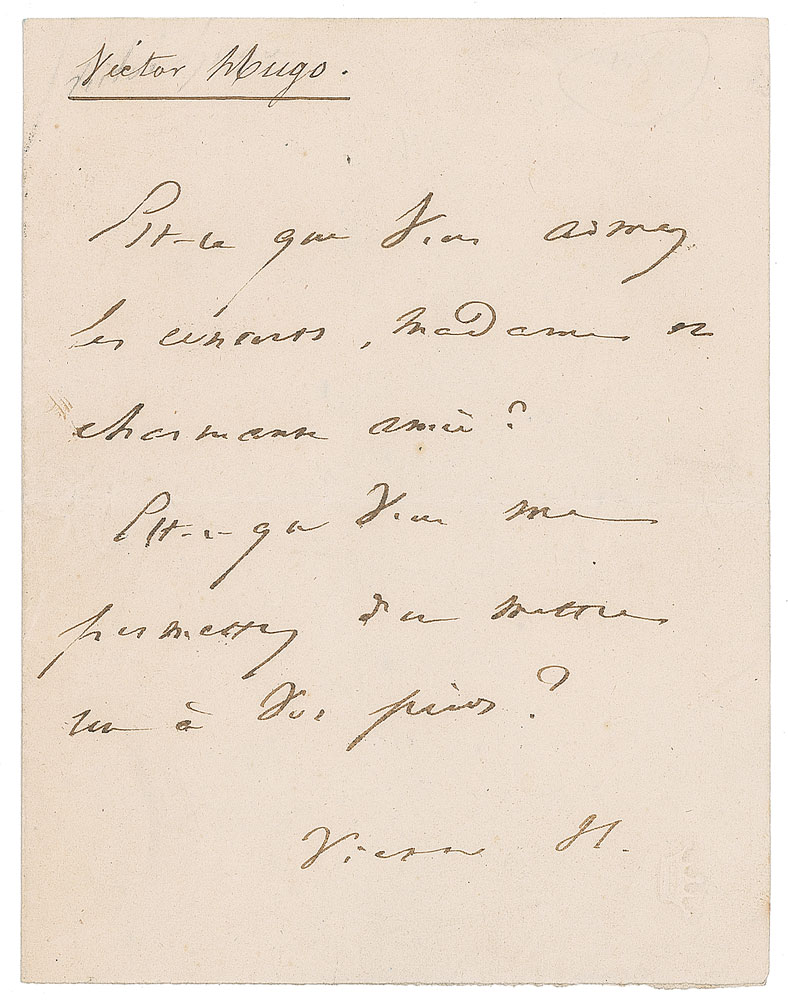 Victor Hugo.
Est-ce que Vous aimez
les , Madame et
charmante amie ?
Est-ce que Vous me
permettez d'en mettre
un à Vos pieds ?
Victor H.